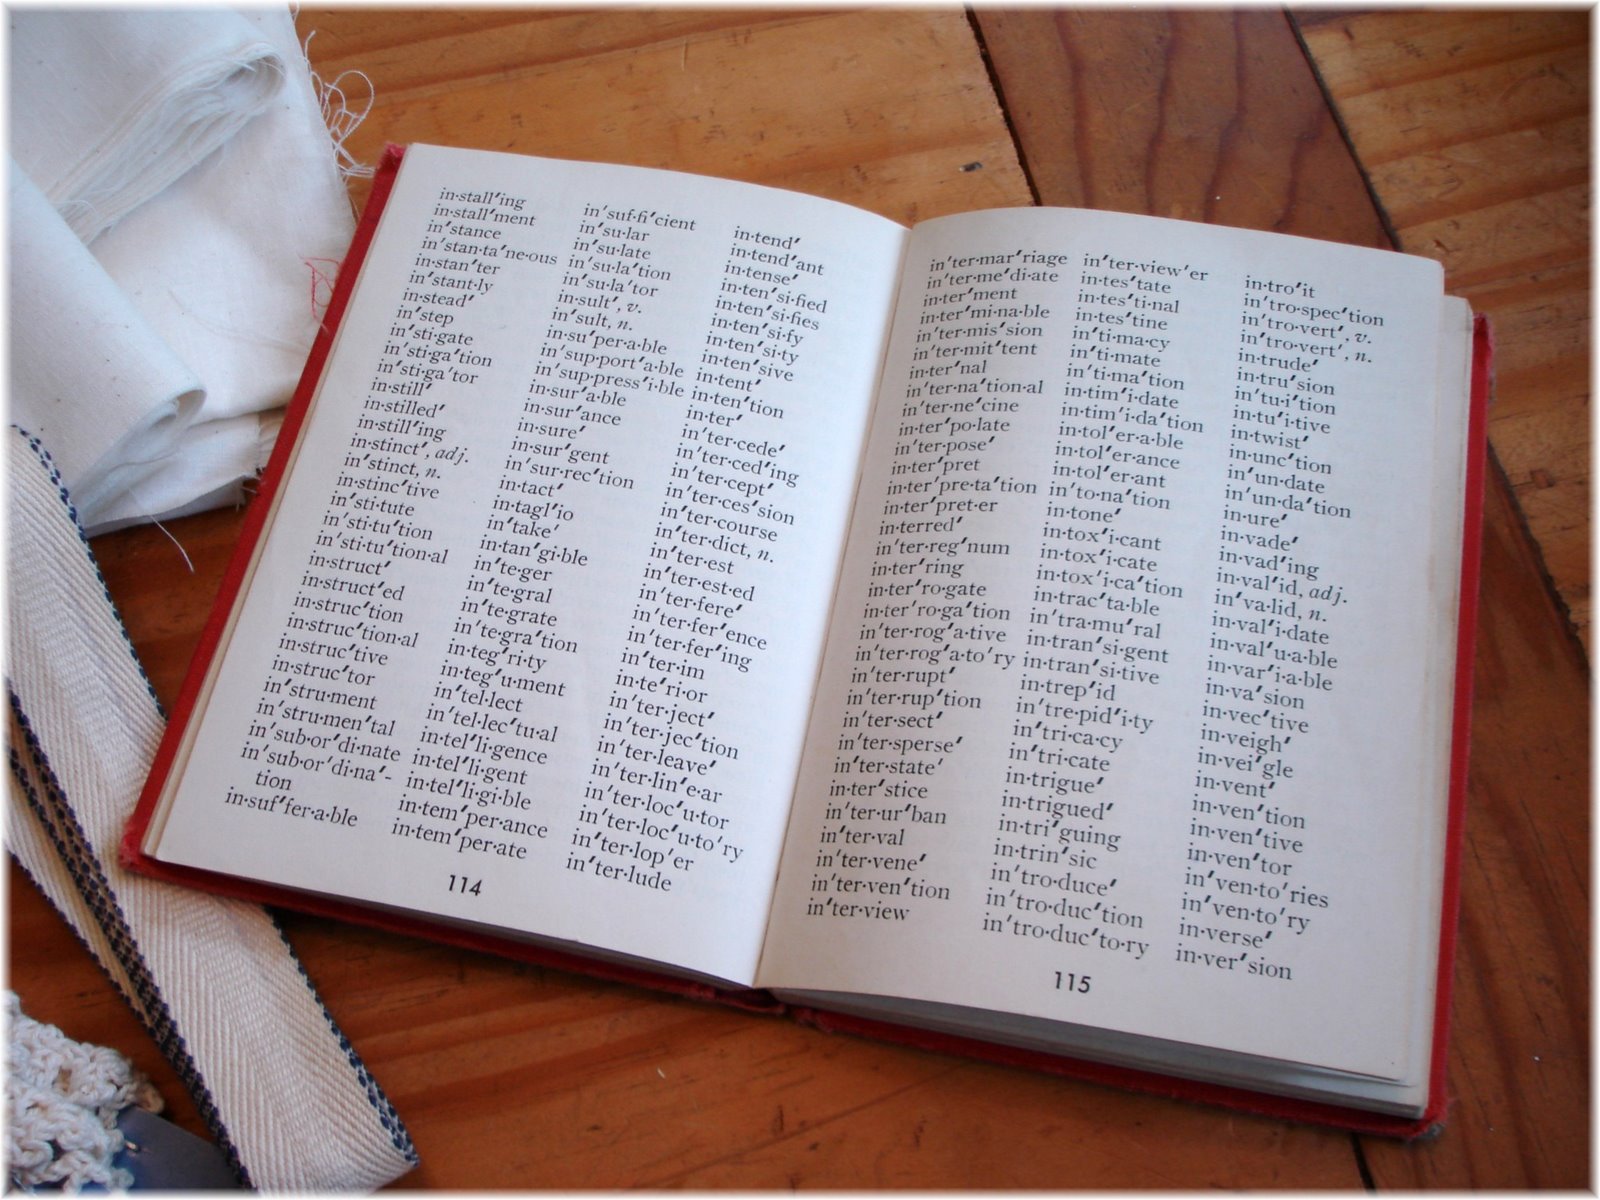 in·stall′ing
in·stall′ment
in′stance
in′stan·ta′ne·ous
in·stan′ter
in′stant·ly
in·stead′
in′step
in′sti·gate
in′sti·ga′tion
in′sti·ga′tor
in·still′
in·stilled′
in·still′ing
in·stinct′, adj.
in′stinct, n.
in·stinc′tive
in′sti·tute
in′sti·tu′tion
in′sti·tu′tion·al
in·struct′
in·struct′ed
in·struc′tion
in·struc′tion·al
in·struc′tive
in·struc′tor
in′stru·ment
in′stru·men′tal
in′sub·or′di·nate
in′sub·or′di·na′-
tion
in·suf′fer·a·ble
in′suf·fi′cient
in′su·lar
in′su·late
in′su·la′tion
in′su·la′tor
in·sult′, v.
in′sult, n.
in·su′per·a·ble
in′sup·port′a·ble
in′sup·press′i·ble
in·sur′a·ble
in·sur′ance
in·sure′
in·sur′gent
in′sur·rec′tion
in·tact′
in·tagl′io
in′take′
in·tan′gi·ble
in′te·ger
in′te·gral
in′te·grate
in′te·gra′tion
in·teg′ri·ty
in·teg′u·ment
in′tel·lect
in′tel·lec′tu·al
in·tel′li·gence
in·tel′li·gent
in·tel′li·gi·ble
in·tem′per·ance
in·tem′per·ate
in·tend′
in·tend′ant
in·tense′
in·ten′si·fied
in·ten′si·fies
in·ten′si·fy
in·ten′si·ty
in·ten′sive
in·tent′
in·ten′tion
in·ter′
in′ter·cede′
in′ter·ced′ing
in′ter·cept′
in′ter·ces′sion
in′ter·course
in′ter·dict, n.
in′ter·est
in′ter·est·ed
in′ter·fere′
in′ter·fer′ence
in′ter·fer′ing
in′ter·im
in·te′ri·or
in′ter·ject′
in′ter·jec′tion
in′ter·leave′
in′ter·lin′e·ar
in′ter·loc′u·tor
in′ter·loc′u·to′ry
in′ter·lop′er
in′ter·lude
114
in′ter·mar′riage
in′ter·me′di·ate
in·ter′ment
in·ter′mi·na·ble
in′ter·mis′sion
in′ter·mit′tent
in·ter′nal
in′ter·na′tion·al
in′ter·ne′cine
in·ter′po·late
in′ter·pose′
in·ter′pret
in·ter′pre·ta′tion
in·ter′pret·er
in·terred′
in′ter·reg′num
in·ter′ring
in·ter′ro·gate
in·ter′ro·ga′tion
in′ter·rog′a·tive
in′ter·rog′a·to′ry
in′ter·rupt′
in′ter·rup′tion
in′ter·sect′
in′ter·sperse′
in′ter·state′
in·ter′stice
in′ter·ur′ban
in′ter·val
in′ter·vene′
in′ter·ven′tion
in′ter·view
in′ter·view′er
in·tes′tate
in·tes′ti·nal
in·tes′tine
in′ti·ma·cy
in′ti·mate
in′ti·ma′tion
in·tim′i·date
in·tim′i·da′tion
in·tol′er·a·ble
in·tol′er·ance
in·tol′er·ant
in′to·na′tion
in·tone′
in·tox′i·cant
in·tox′i·cate
in·tox′i·ca′tion
in·trac′ta·ble
in′tra·mu′ral
in·tran′si·gent
in·tran′si·tive
in·trep′id
in′tre·pid′i·ty
in′tri·ca·cy
in′tri·cate
in·trigue′
in·trigued′
in·tri′guing
in·trin′sic
in′tro·duce′
in′tro·duc′tion
in′tro·duc′to·ry
in·tro′it
in′tro·spec′tion
in′tro·vert′, v.
in′tro·vert′, n.
in·trude′
in·tru′sion
in′tu·i′tion
in·tu′i·tive
in·twist′
in·unc′tion
in′un·date
in′un·da′tion
in·ure′
in·vade′
in·vad′ing
in·val′id, adj.
in′va·lid, n.
in·val′i·date
in·val′u·a·ble
in·var′i·a·ble
in·va′sion
in·vec′tive
in·veigh′
in·vei′gle
in·vent′
in·ven′tion
in·ven′tive
in·ven′tor
in′ven·to′ries
in′ven·to′ry
in·verse′
in·ver′sion
115